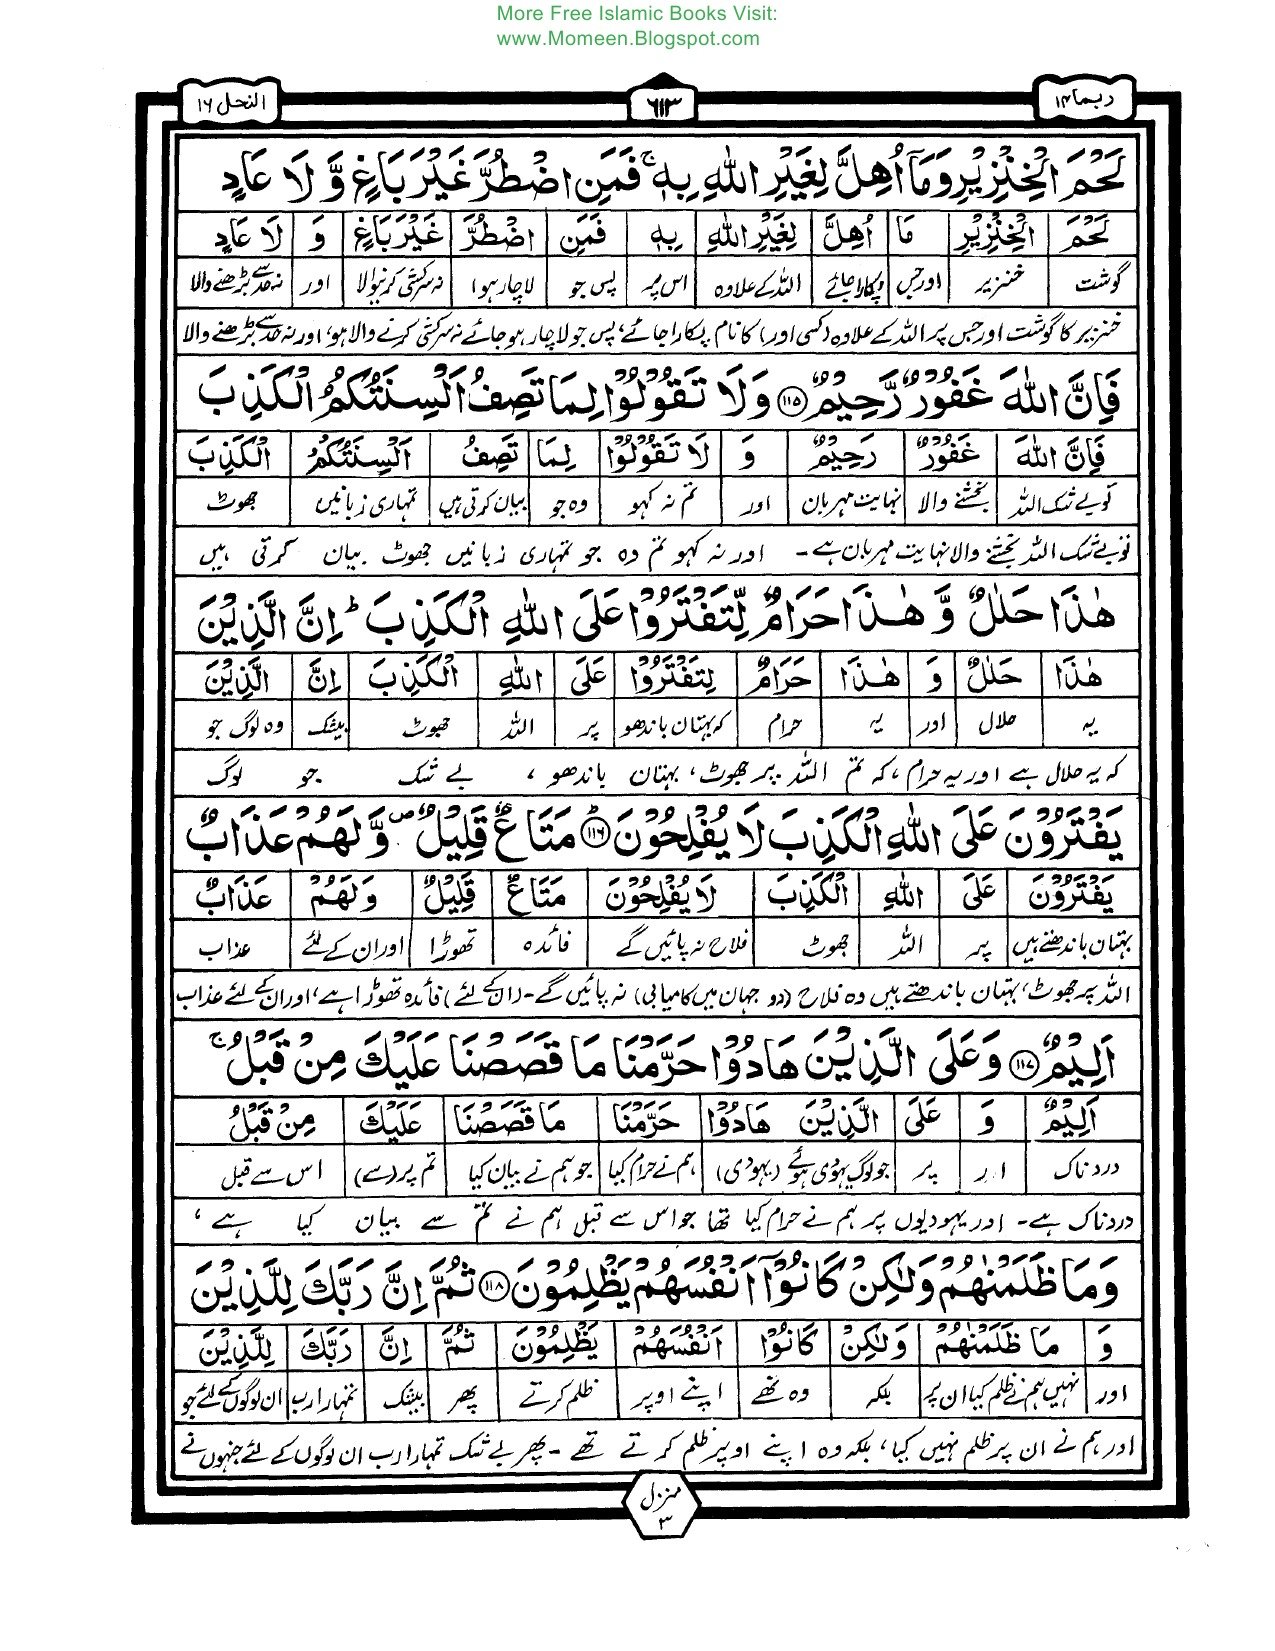 More Free Islamic Books Visit:
www.Momeen.Blogspot.com
ربما ۱۴
۶۱۳
النحل ۱۶
لَحْمَ الْخِنْزِيْرِ وَمَاۤ اُهِلَّ لِغَيْرِ اللّٰهِ بِهٖ ۚ فَمَنِ اضْطُرَّ غَيْرَ بَاغٍ وَّ لَا عَادٍ
لَحْمَ الْخِنْزِيْرِ مَا اُهِلَّ لِغَيْرِ اللّٰهِ بِهٖ فَمَنِ اضْطُرَّ غَيْرَ بَاغٍ وَ لَا عَادٍ
گوشت خنزیر اور جس پکارا جائے اللہ کے علاوہ اس پر پس جو لاچار ہوا نہ سرکشی کرنیوالا اور نہ حد سے بڑھنے والا
خنزیر کا گوشت اور جس پر اللہ کے علاوہ (کسی اور) کا نام پکارا جائے، پس جو لاچار ہو جائے نہ سرکشی کرنے والا ہو، اور نہ حد سے بڑھنے والا
فَاِنَّ اللّٰهَ غَفُوْرٌ رَّحِيْمٌ ۱۱۵ وَلَا تَقُوْلُوْا لِمَا تَصِفُ اَلْسِنَتُكُمُ الْكَذِبَ
فَاِنَّ اللّٰهَ غَفُوْرٌ رَحِيْمٌ وَ لَا تَقُوْلُوْا لِمَا تَصِفُ اَلْسِنَتُكُمُ الْكَذِبَ
تو بے شک اللہ بخشنے والا نہایت مہربان اور تم نہ کہو وہ جو بیان کرتی ہیں تمہاری زبانیں جھوٹ
تو بے شک اللہ بخشنے والا نہایت مہربان ہے۔ اور نہ کہو تم وہ جو تمہاری زبانیں جھوٹ بیان کرتی ہیں
هٰذَا حَلٰلٌ وَّ هٰذَا حَرَامٌ لِّتَفْتَرُوْا عَلَى اللّٰهِ الْكَذِبَ ؕ اِنَّ الَّذِيْنَ
هٰذَا حَلٰلٌ وَ هٰذَا حَرَامٌ لِتَفْتَرُوْا عَلَى اللّٰهِ الْكَذِبَ اِنَّ الَّذِيْنَ
یہ حلال اور یہ حرام کہ بہتان باندھو پر اللہ جھوٹ بیشک وہ لوگ جو
کہ یہ حلال ہے اور یہ حرام، کہ تم اللہ پر جھوٹ، بہتان باندھو، بے شک جو لوگ
يَفْتَرُوْنَ عَلَى اللّٰهِ الْكَذِبَ لَا يُفْلِحُوْنَ ؕ ۱۱۶ مَتَاعٌ قَلِيْلٌ ۪ وَّلَهُمْ عَذَابٌ
يَفْتَرُوْنَ عَلَى اللّٰهِ الْكَذِبَ لَا يُفْلِحُوْنَ مَتَاعٌ قَلِيْلٌ وَلَهُمْ عَذَابٌ
بہتان باندھتے ہیں پر اللہ جھوٹ فلاح نہ پائیں گے فائدہ تھوڑا اور ان کے لئے عذاب
اللہ پر جھوٹ، بہتان باندھتے ہیں وہ فلاح (دو جہان میں کامیابی) نہ پائیں گے۔ (ان کے لئے) فائدہ تھوڑا ہے، اور ان کے لئے عذاب
اَلِيْمٌ ۱۱۷ وَعَلَى الَّذِيْنَ هَادُوْا حَرَّمْنَا مَا قَصَصْنَا عَلَيْكَ مِنْ قَبْلُ ۚ
اَلِيْمٌ وَ عَلَى الَّذِيْنَ هَادُوْا حَرَّمْنَا مَا قَصَصْنَا عَلَيْكَ مِنْ قَبْلُ
دردناک اور پر جو لوگ یہودی ہوئے (یہودی) ہم نے حرام کیا جو ہم نے بیان کیا تم پر (سے) اس سے قبل
دردناک ہے۔ اور یہودیوں پر ہم نے حرام کیا تھا جو اس سے قبل ہم نے تم سے بیان کیا ہے،
وَمَا ظَلَمْنٰهُمْ وَلٰكِنْ كَانُوْۤا اَنْفُسَهُمْ يَظْلِمُوْنَ ۱۱۸ ثُمَّ اِنَّ رَبَّكَ لِلَّذِيْنَ
وَ مَا ظَلَمْنٰهُمْ وَلٰكِنْ كَانُوْا اَنْفُسَهُمْ يَظْلِمُوْنَ ثُمَّ اِنَّ رَبَّكَ لِلَّذِيْنَ
اور نہیں ہم نے ظلم کیا ان پر بلکہ وہ تھے اپنے اوپر ظلم کرتے پھر بیشک تمہارا رب ان لوگوں کے لئے جو
اور ہم نے ان پر ظلم نہیں کیا، بلکہ وہ اپنے اوپر ظلم کرتے تھے۔ پھر بے شک تمہارا رب ان لوگوں کے لئے جنہوں نے
منزل ۳